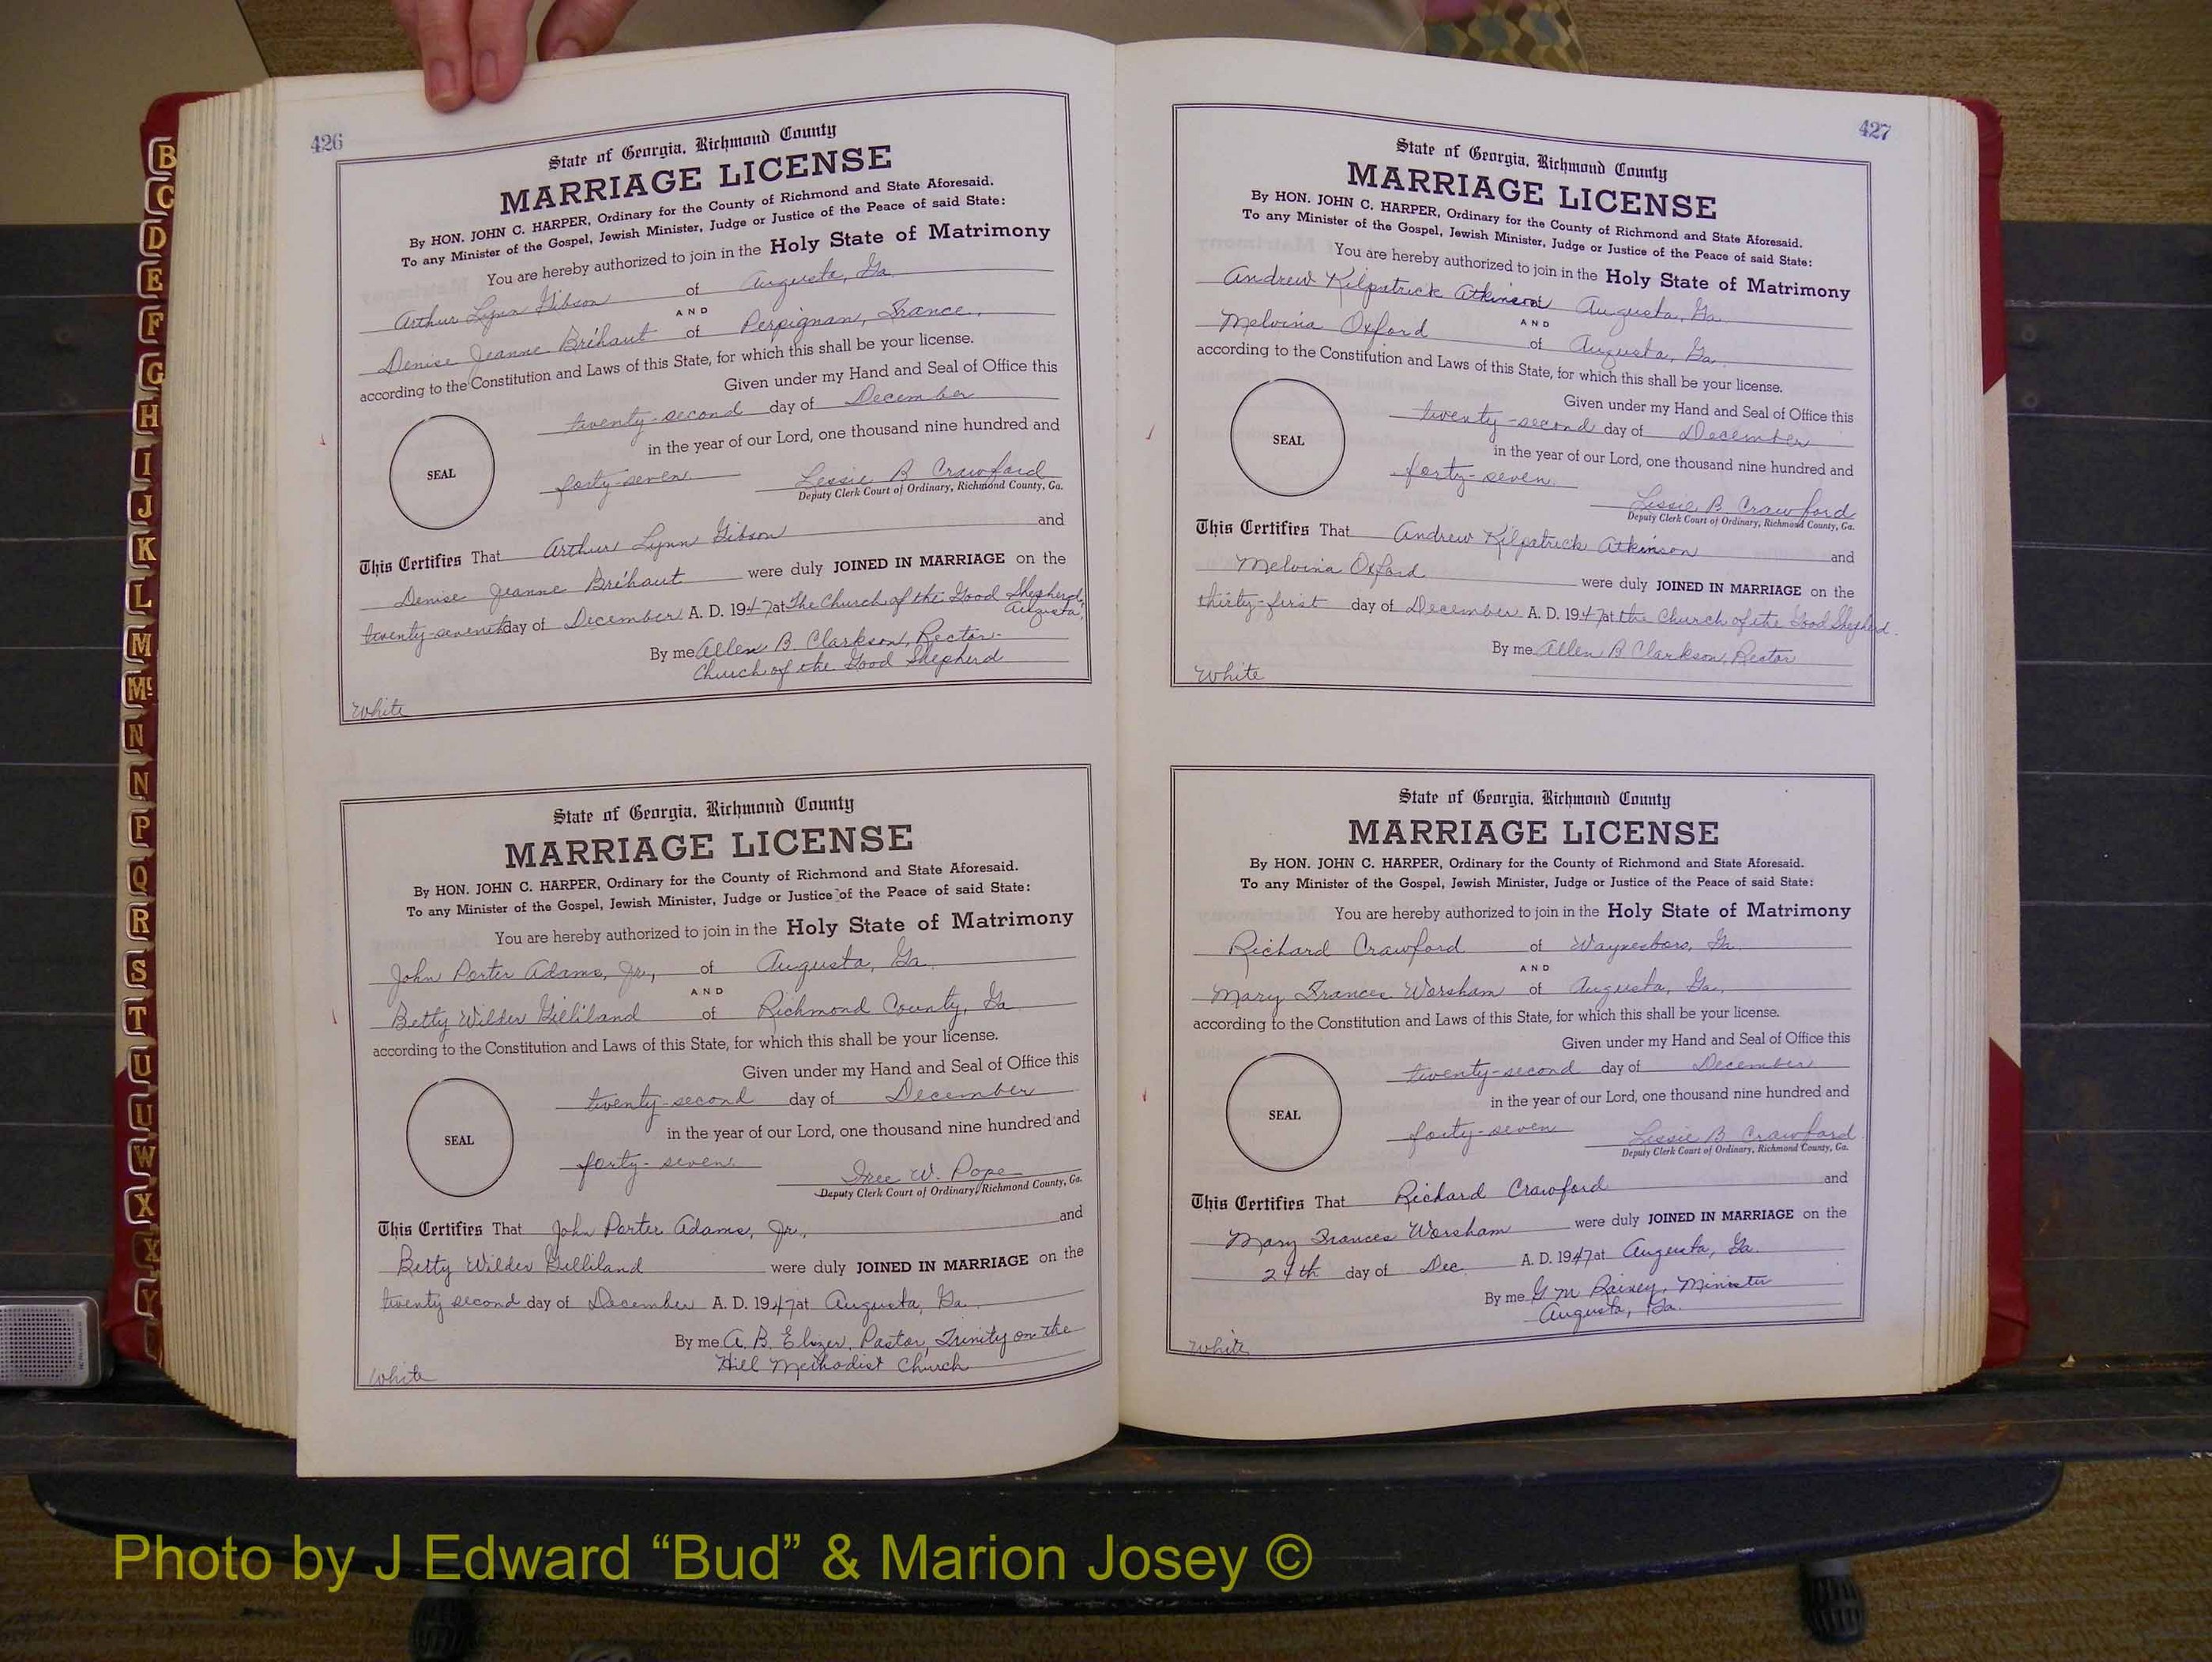 426
State of Georgia, Richmond County
MARRIAGE LICENSE
By HON. JOHN C. HARPER, Ordinary for the County of Richmond and State Aforesaid.
To any Minister of the Gospel, Jewish Minister, Judge or Justice of the Peace of said State:
You are hereby authorized to join in the Holy State of Matrimony
Arthur Lynn Gibson of Augusta, Ga.
AND
Denise Jeanne Bréhaut of Perpignan, France,
according to the Constitution and Laws of this State, for which this shall be your license.
Given under my Hand and Seal of Office this
twenty-second day of December
in the year of our Lord, one thousand nine hundred and
SEAL
forty-seven. Lessie B Crawford
Deputy Clerk Court of Ordinary, Richmond County, Ga.
This Certifies That Arthur Lynn Gibson and
Denise Jeanne Bréhaut were duly JOINED IN MARRIAGE on the
twenty-seventh day of December A. D. 1947 at The Church of the Good Shepherd,
Augusta,
By me Allen B. Clarkson, Rector
Church of the Good Shepherd
White
State of Georgia, Richmond County
MARRIAGE LICENSE
By HON. JOHN C. HARPER, Ordinary for the County of Richmond and State Aforesaid.
To any Minister of the Gospel, Jewish Minister, Judge or Justice of the Peace of said State:
You are hereby authorized to join in the Holy State of Matrimony
John Porter Adams, Jr., of Augusta, Ga.
AND
Betty Wilder Gilliland of Richmond County, Ga
according to the Constitution and Laws of this State, for which this shall be your license.
Given under my Hand and Seal of Office this
twenty-second day of December
in the year of our Lord, one thousand nine hundred and
SEAL
forty-seven. W. Pope
Deputy Clerk Court of Ordinary, Richmond County, Ga.
This Certifies That John Porter Adams, Jr., and
Betty Wilder Gilliland were duly JOINED IN MARRIAGE on the
twenty second day of December A. D. 1947 at Augusta, Ga.
By me A. B. Pastor, Trinity on the
Hill Methodist Church
White
427
State of Georgia, Richmond County
MARRIAGE LICENSE
By HON. JOHN C. HARPER, Ordinary for the County of Richmond and State Aforesaid.
To any Minister of the Gospel, Jewish Minister, Judge or Justice of the Peace of said State:
You are hereby authorized to join in the Holy State of Matrimony
Andrew Kilpatrick Atkinson of Augusta, Ga.
AND
Melvina Oxford of Augusta, Ga.
according to the Constitution and Laws of this State, for which this shall be your license.
Given under my Hand and Seal of Office this
twenty-second day of December
in the year of our Lord, one thousand nine hundred and
SEAL
forty-seven. Lessie B. Crawford
Deputy Clerk Court of Ordinary, Richmond County, Ga.
This Certifies That Andrew Kilpatrick Atkinson and
Melvina Oxford were duly JOINED IN MARRIAGE on the
thirty-first day of December A. D. 1947 at the Church of the Good Shepherd.
By me Allen B Clarkson, Rector
White
State of Georgia, Richmond County
MARRIAGE LICENSE
By HON. JOHN C. HARPER, Ordinary for the County of Richmond and State Aforesaid.
To any Minister of the Gospel, Jewish Minister, Judge or Justice of the Peace of said State:
You are hereby authorized to join in the Holy State of Matrimony
Richard Crawford of Waynesboro, Ga.
AND
Mary Frances Worsham of Augusta, Ga.
according to the Constitution and Laws of this State, for which this shall be your license.
Given under my Hand and Seal of Office this
twenty-second day of December
in the year of our Lord, one thousand nine hundred and
SEAL
forty-seven Lessie B Crawford
Deputy Clerk Court of Ordinary, Richmond County, Ga.
This Certifies That Richard Crawford and
Mary Frances Worsham were duly JOINED IN MARRIAGE on the
24th day of Dec. A. D. 1947 at Augusta, Ga.
By me G M Rainey, Minister
Augusta, Ga.
White
B
C
D
E
F
G
H
I
J
K
L
M
Mc
N
N
P
Q
R
S
T
U
U
W
X
X
Y
Photo by J Edward “Bud” & Marion Josey ©